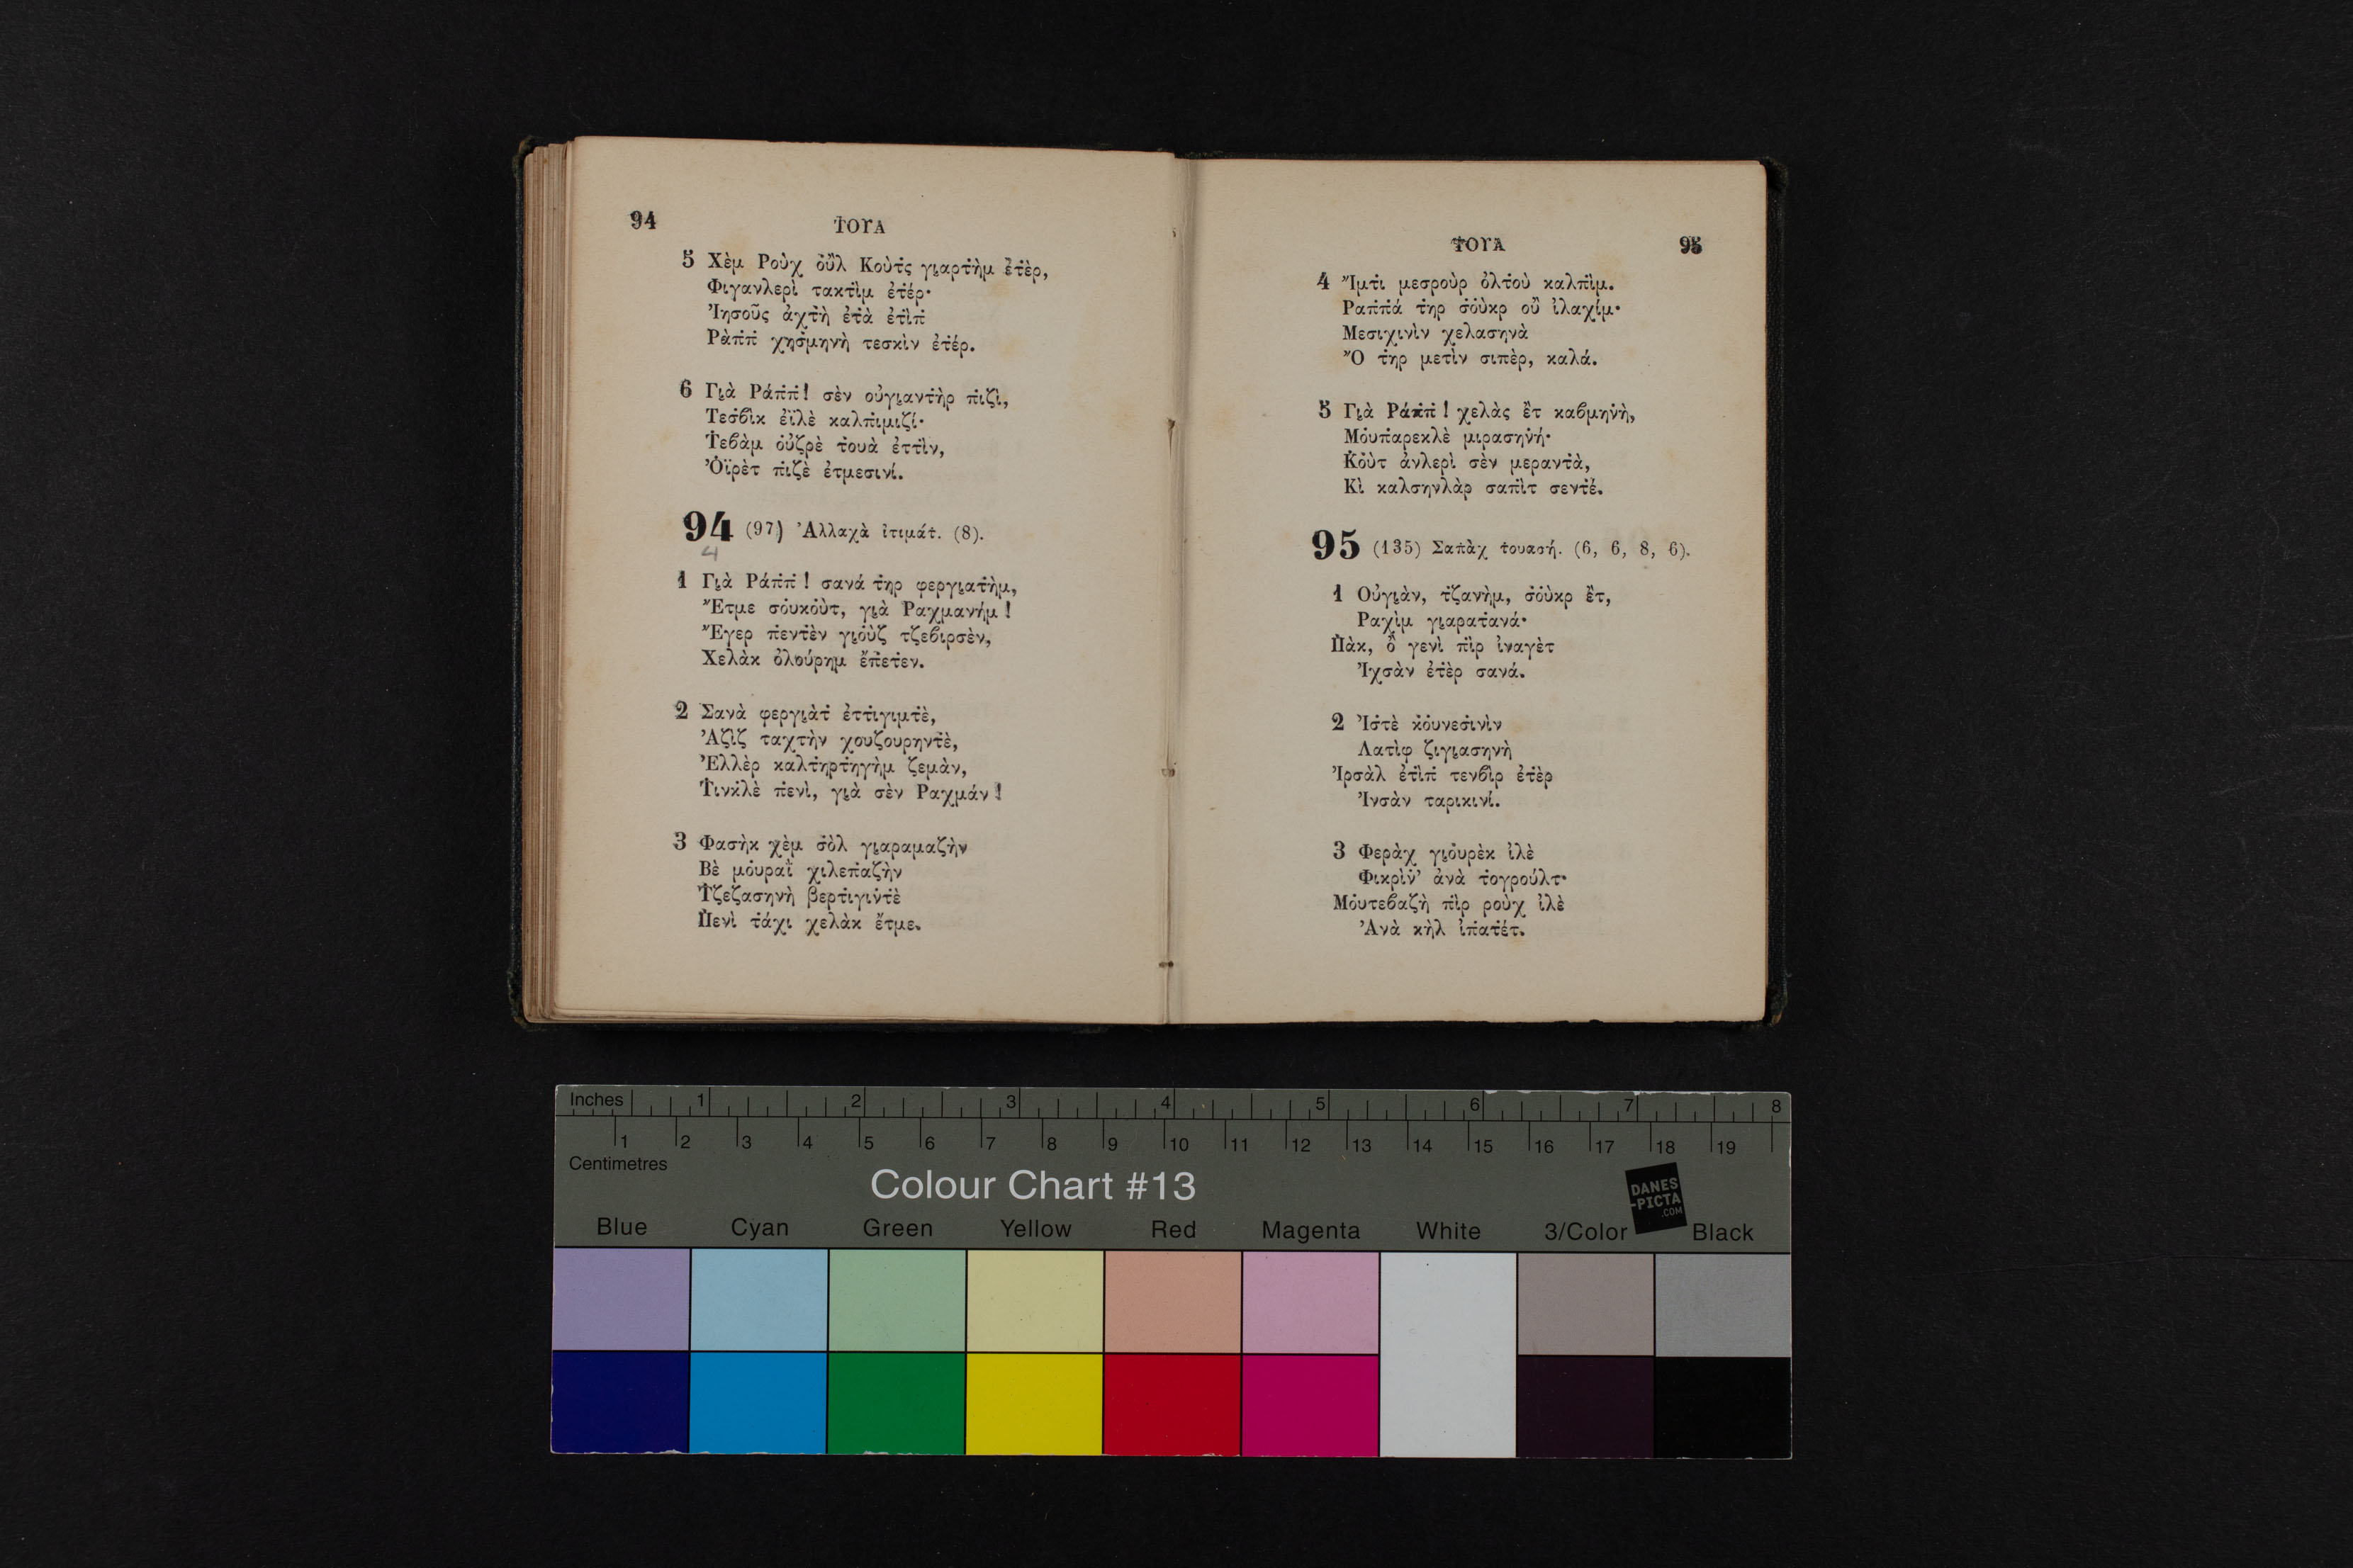 94
ṪΟΥΑ
5 Χὲμ Ροὺχ οὒλ Κοὺτς γιαρτὴμ ἐτὲρ,
Φιγανλερὶ τακτὶμ ἐτέρ·
Ἰησοῦς ἀχτὴ ἐτὰ ἐτὶπ̇
Ρὰπ̇π̇ χησ̇μηνὴ τεσκὶν ἐτέρ.
6 Γιὰ Ράπ̇π̇! σὲν οὐγιαντὴρ π̇ιζὶ,
Τεσ̇βὶκ ἐϊλὲ καλπ̇ιμιζί·
Ṫεβὰμ οὐζρὲ τ̇ουὰ ἐττὶν,
Ὀϊρὲτ π̇ιζὲ ἐτμεσινί.
94 (97) Ἀλλαχὰ ἰτιμάτ̇. (8).
4
1 Γιὰ Ράπ̇π̇! σανά τ̇ηρ φεργιατ̇ὴμ,
Ἔτμε σ̇ουκοὺτ, γιὰ Ραχμανήμ!
Ἔγερ π̇εντ̇ὲν γιοὺζ τζεβιρσὲν,
Χελὰκ ὀλούρημ ἔπ̇ετ̇εν.
2 Σανὰ φεργιὰτ̇ ἐττ̇ιγιμτ̇ὲ,
Ἀζὶζ ταχτὴν χουζουρηντ̇ὲ,
Ἐλλὲρ καλτ̇ηρτ̇ηγὴμ ζεμὰν,
Ṫινκ̇λὲ π̇ενὶ, γιὰ σὲν Ραχμάν!
3 Φασὴκ χὲμ σ̇ὸλ γιαραμαζὴν
Βὲ μ̇ουραῒ χιλεπ̇αζὴν
Ṫζεζασηνὴ βερτ̇ιγιν̇τ̇ὲ
Π̇ενὶ τ̇άχι χελὰκ ἔτμε.
ṪΟΥΑ
95
4 Ἴμτ̇ι μεσροὺρ ὀλτ̇οὺ καλπ̇ὶμ.
Ραπ̇π̇ά τ̇ηρ σ̇οὺκρ οὒ ἰλαχίμ·
Μεσιχινὶν χελασηνὰ
Ὂ τ̇ηρ μετὶν σιπὲρ, καλά.
5 Γιὰ Ράπ̇π̇! χελὰς ἒτ καβμηνὴ,
Μ̇ουπ̇αρεκλὲ μιρασηνή·
Κ̇οὺτ ἀνλερὶ σὲν μεραντ̇ὰ,
Κὶ καλσηνλὰρ σαπ̇ὶτ σεντ̇έ.
95 (135) Σαπ̇ὰχ τ̇ουασή. (6, 6, 8, 6).
1 Οὐγιὰν, τ̇ζανὴμ, σ̇οὺκρ ἒτ,
Ραχὶμ γιαρατ̇ανά·
Π̇ὰκ, ὂ γενὶ π̇ὶρ ἰναγὲτ
Ἰχσὰν ἐτ̇ὲρ σανά.
2 Ἰσ̇τὲ κ̇ουνεσ̇ινὶν
Λατὶφ ζιγιασηνὴ
Ἰρσὰλ ἐτ̇ὶπ̇ τενβὶρ ἐτ̇ὲρ
Ἰνσὰν ταρικινί.
3 Φερὰχ γιουρὲκ ἰλὲ
Φικρὶν̇' ἀνὰ τ̇ογρούλτ·
Μ̇ουτεβαζὴ π̇ὶρ ροὺχ ἰλὲ
Ἀνὰ κὴλ ἰπ̇ατ̇έτ.
Inches 1 2 3 4 5 6 7 8
1 2 3 4 5 6 7 8 9 10 11 12 13 14 15 16 17 18 19
Centimetres
Colour Chart #13
DANES
-PICTA
.COM
Blue Cyan Green Yellow Red Magenta White 3/Color Black